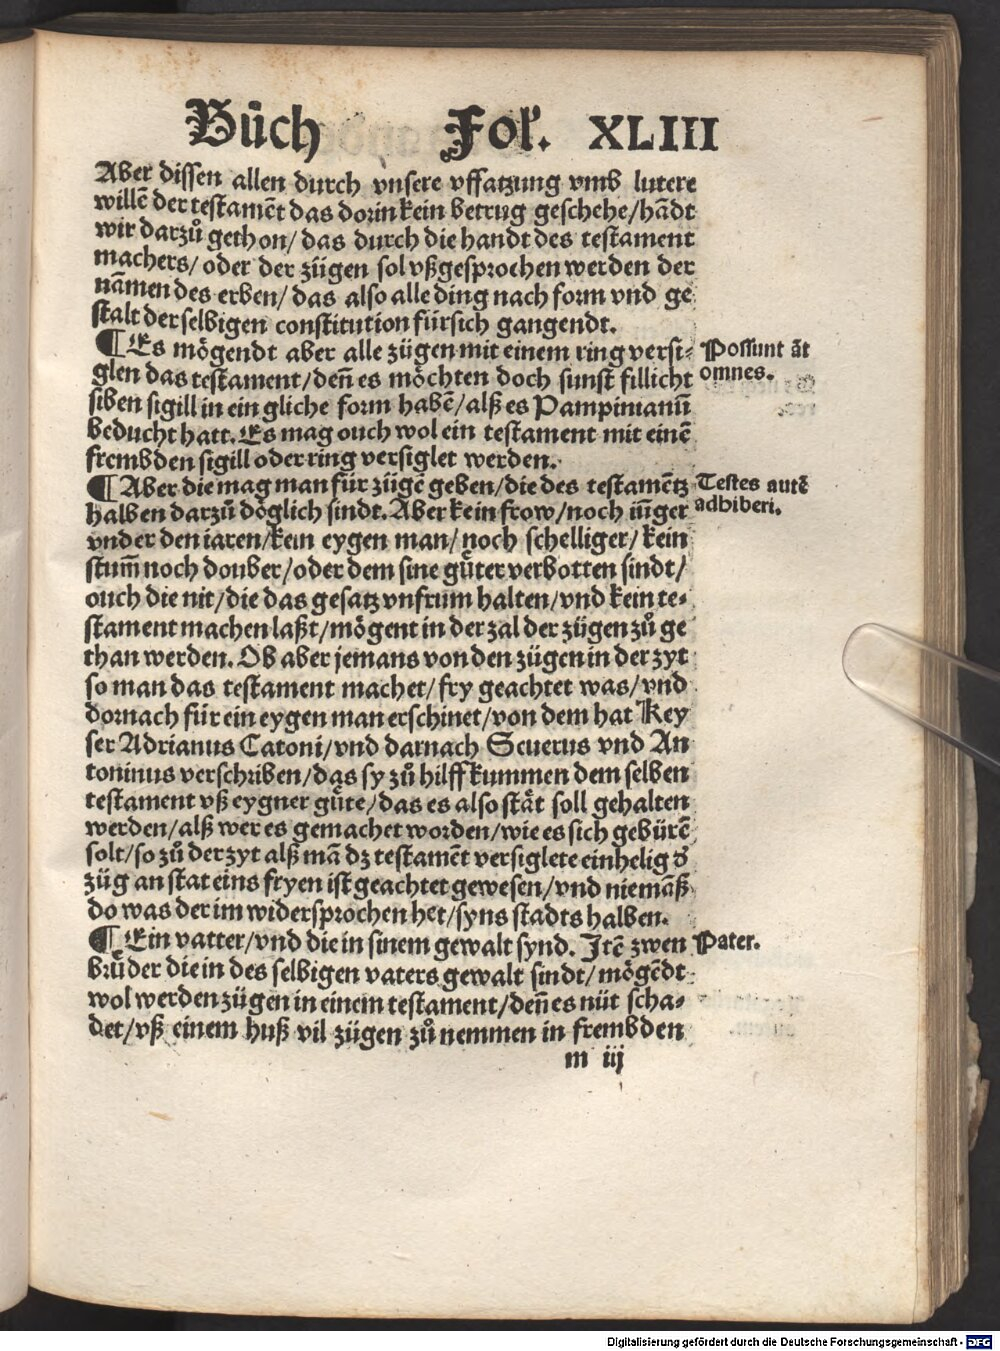 Bůch Fol. XLIII
Aber dissen allen durch vnsere vffatzung vmb lutere
willē der testamēt das dorin kein betrug geschehe/hādt
wir darzů gethon/ das durch die handt des testament
machers/ oder der zügen sol vßgesprochen werden der
nāmen des erben/ das also alle ding nach form vnd ge
stalt der selbigen constitution fürsich gangendt.
¶Es mögendt aber alle zügen mit einem ring versi⸗
glen das testament/deñ es möchten doch sunst fillicht
siben sigill in ein gliche form habē/alß es Pampinianū
beducht hatt. Es mag ouch wol ein testament mit einē
frembden sigill oder ring versiglet werden.
Possunt āt
omnes.
¶Aber die mag man für zügē geben/die des testamētz
halben darzů döglich sindt. Aber kein frow/noch iūger
vnder den iaren/kein eygen man/ noch schelliger/ kein
stum̄ noch douber/oder dem sine gůter verbotten sindt/
ouch die nit/die das gesatz vnfrum halten/vnd kein te⸗
stament machen laßt/mögent in der zal der zügen zů ge
than werden. Ob aber jemans von den zügen in der zyt
so man das testament machet/fry geachtet was/vnd
dornach für ein eygen man erschinet/von dem hat Key
ser Adrianus Catoni/vnd darnach Seuerus vnd An
toninus verschriben/das sy zů hilff kummen dem selben
testament vß eygner gůte/das es also stät soll gehalten
werden/alß wer es gemachet worden/wie es sich gebürē
solt/so zů der zyt alß mā dz testamēt versiglete einhelig d̕
züg an stat eins fryen ist geachtet gewesen/vnd niemāß
do was der im widersprochen het/syns stadts halben.
Testes autē
adhiberi.
¶Ein vatter/vnd die in sinem gewalt synd. Itē zwen
brůder die in des selbigen vaters gewalt sindt/ mögēdt
wol werden zügen in einem testament/deñ es nüt scha⸗
det/vß einem huß vil zügen zů nemmen in frembden
Pater.
m iij
Digitalisierung gefördert durch die Deutsche Forschungsgemeinschaft - DFG